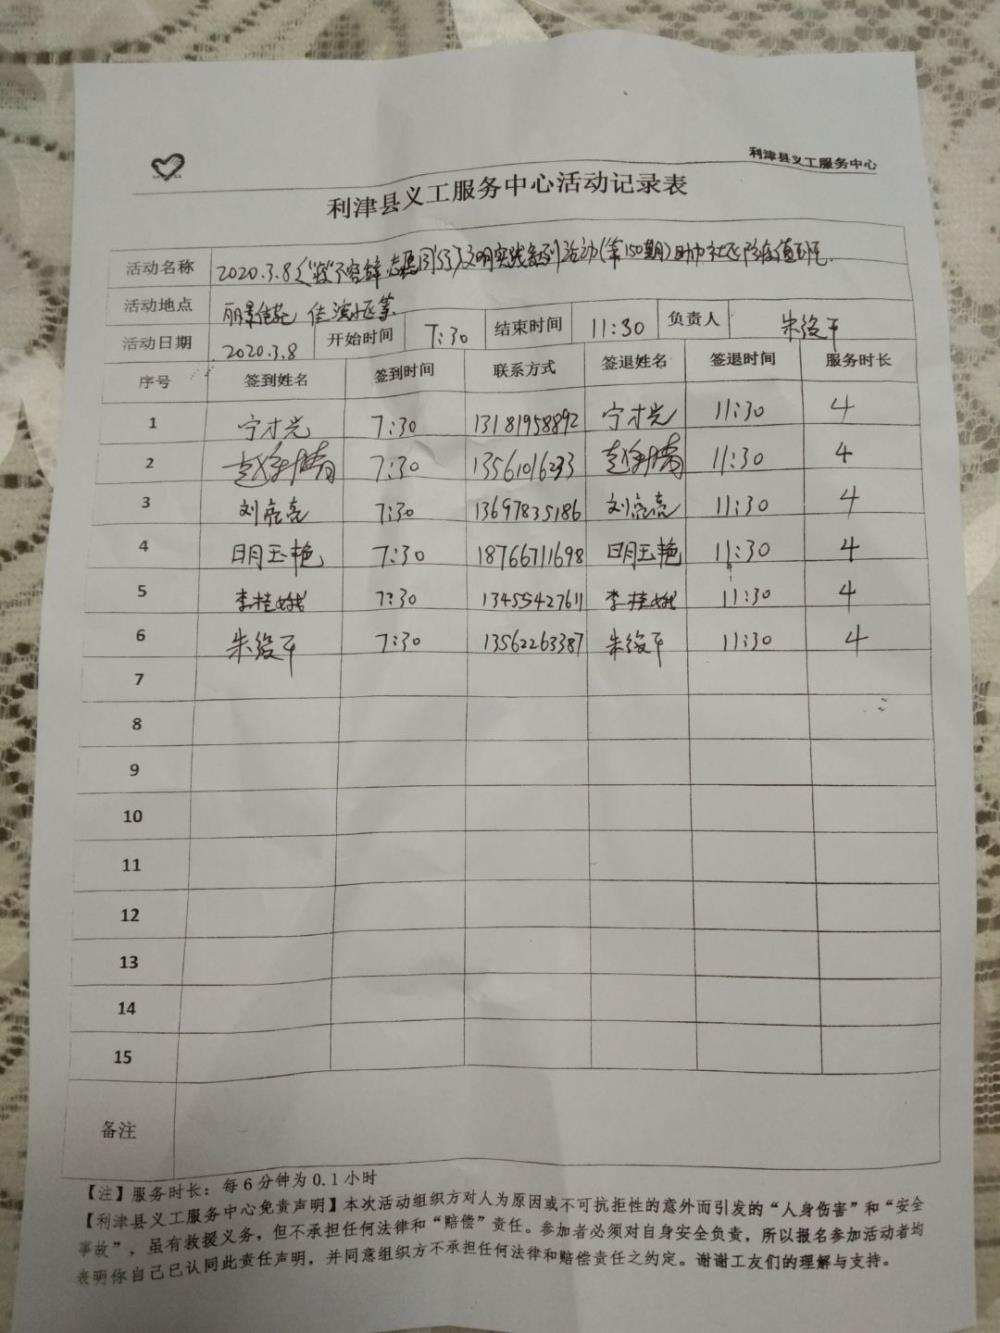 利津县义工服务中心
利津县义工服务中心活动记录表
活动名称 2020.3.8《"疫"不容辞 志愿同行》文明实践系列活动(第150期)助力社区防疫值班
活动地点 丽景佳苑
活动日期 2020.3.8 开始时间 7:30 结束时间 11:30 负责人 朱俊平
序号 签到姓名 签到时间 联系方式 签退姓名 签退时间 服务时长
1 宁才光 7:30 13181958892 宁才光 11:30 4
2 7:30 11:30 4
3 刘亮亮 7:30 13697835186 刘亮亮 11:30 4
4 明玉艳 7:30 18766711698 明玉艳 11:30 4
5 李桂娥 7:30 13455427611 李桂娥 11:30 4
6 朱俊平 7:30 13562263387 朱俊平 11:30 4
7
8
9
10
11
12
13
14
15
备注
【注】服务时长:每6分钟为0.1小时
【利津县义工服务中心免责声明】本次活动组织方对人为原因或不可抗拒性的意外而引发的“人身伤害”和“安全
事故”,虽有救援义务,但不承担任何法律和“赔偿”责任。参加者必须对自身安全负责,所以报名参加活动者均
表明你自己已认同此责任声明,并同意组织方不承担任何法律和赔偿责任之约定。谢谢工友们的理解与支持。